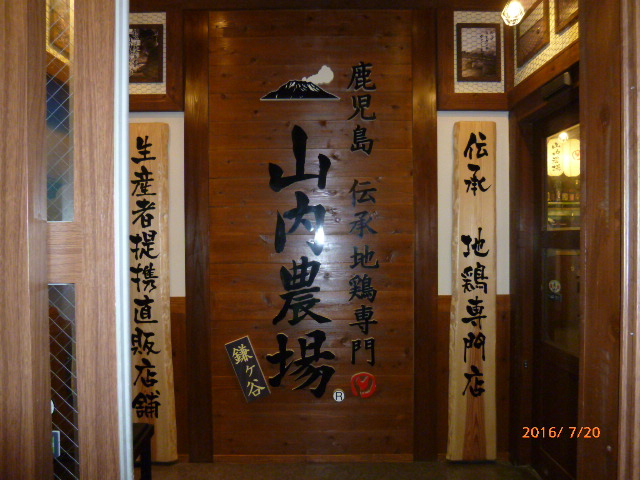 鹿児島 伝承地鶏専門
山内農場
鎌ヶ谷
®
伝承 地鶏専門店
生産者提携直販店舗
山内農場
2016/ 7/20